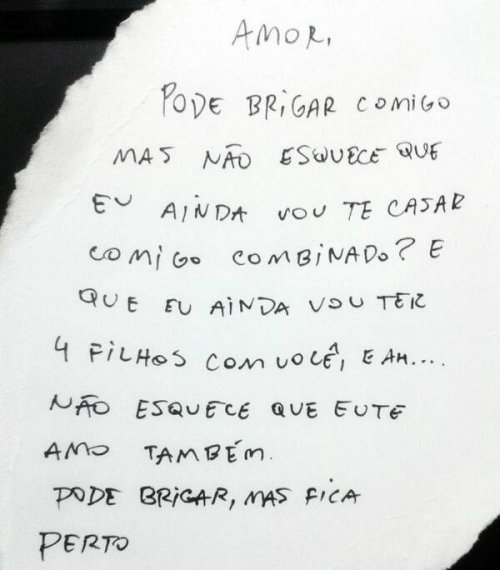 AMOR,
PODE BRIGAR COMIGO
MAS NÃO ESQUECE QUE
EU AINDA VOU TE CASAR
COMIGO COMBINADO? E
QUE EU AINDA VOU TER
4 FILHOS COM VOCÊ, E AH....
NÃO ESQUECE QUE EU TE
AMO TAMBÉM.
PODE BRIGAR, MAS FICA
PERTO